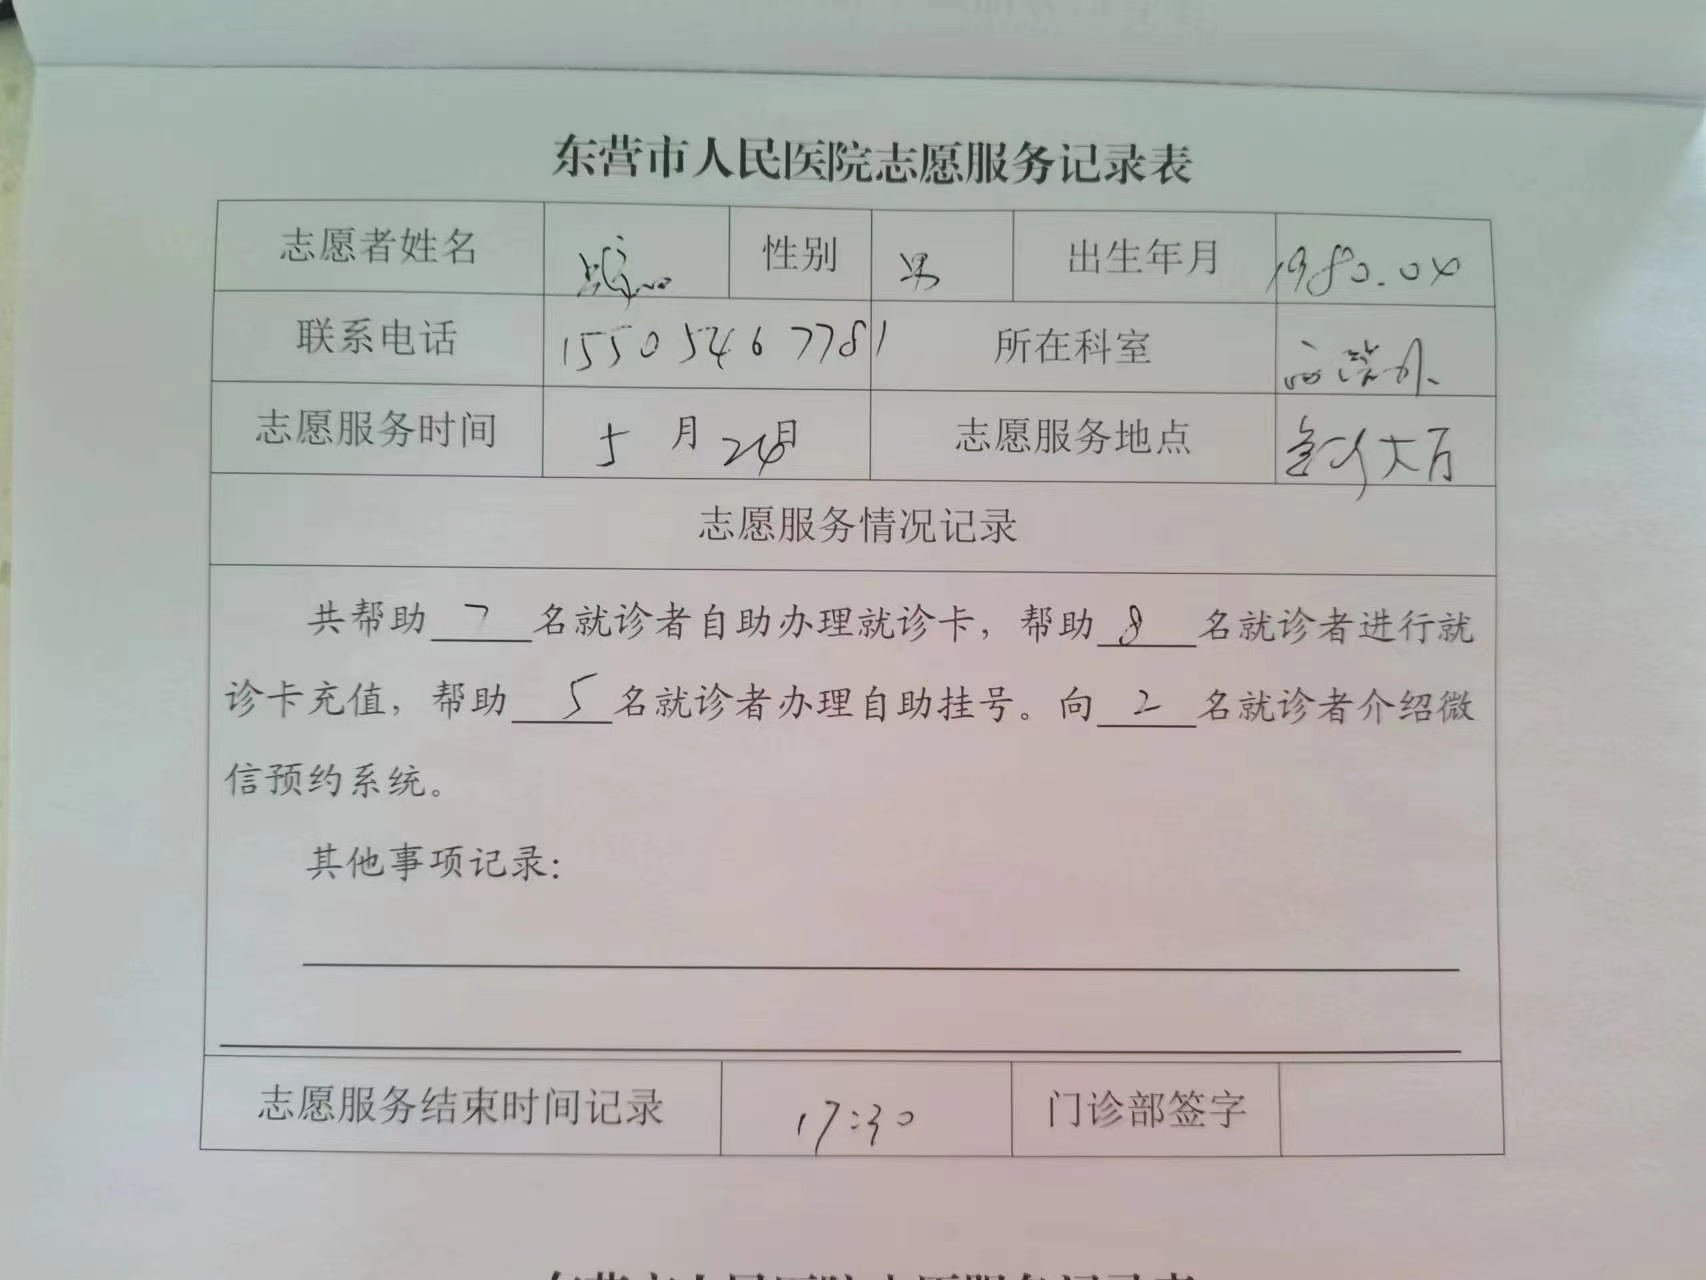 东营市人民医院志愿服务记录表
志愿者姓名 性别 男 出生年月 1980.04
联系电话 15505467781 所在科室
志愿服务时间 5月24日 志愿服务地点 大厅
志愿服务情况记录
共帮助 7 名就诊者自助办理就诊卡，帮助 8 名就诊者进行就
诊卡充值，帮助 5 名就诊者办理自助挂号。向 2 名就诊者介绍微
信预约系统。
其他事项记录：
志愿服务结束时间记录 17:30 门诊部签字
东营市人民医院志愿服务记录表